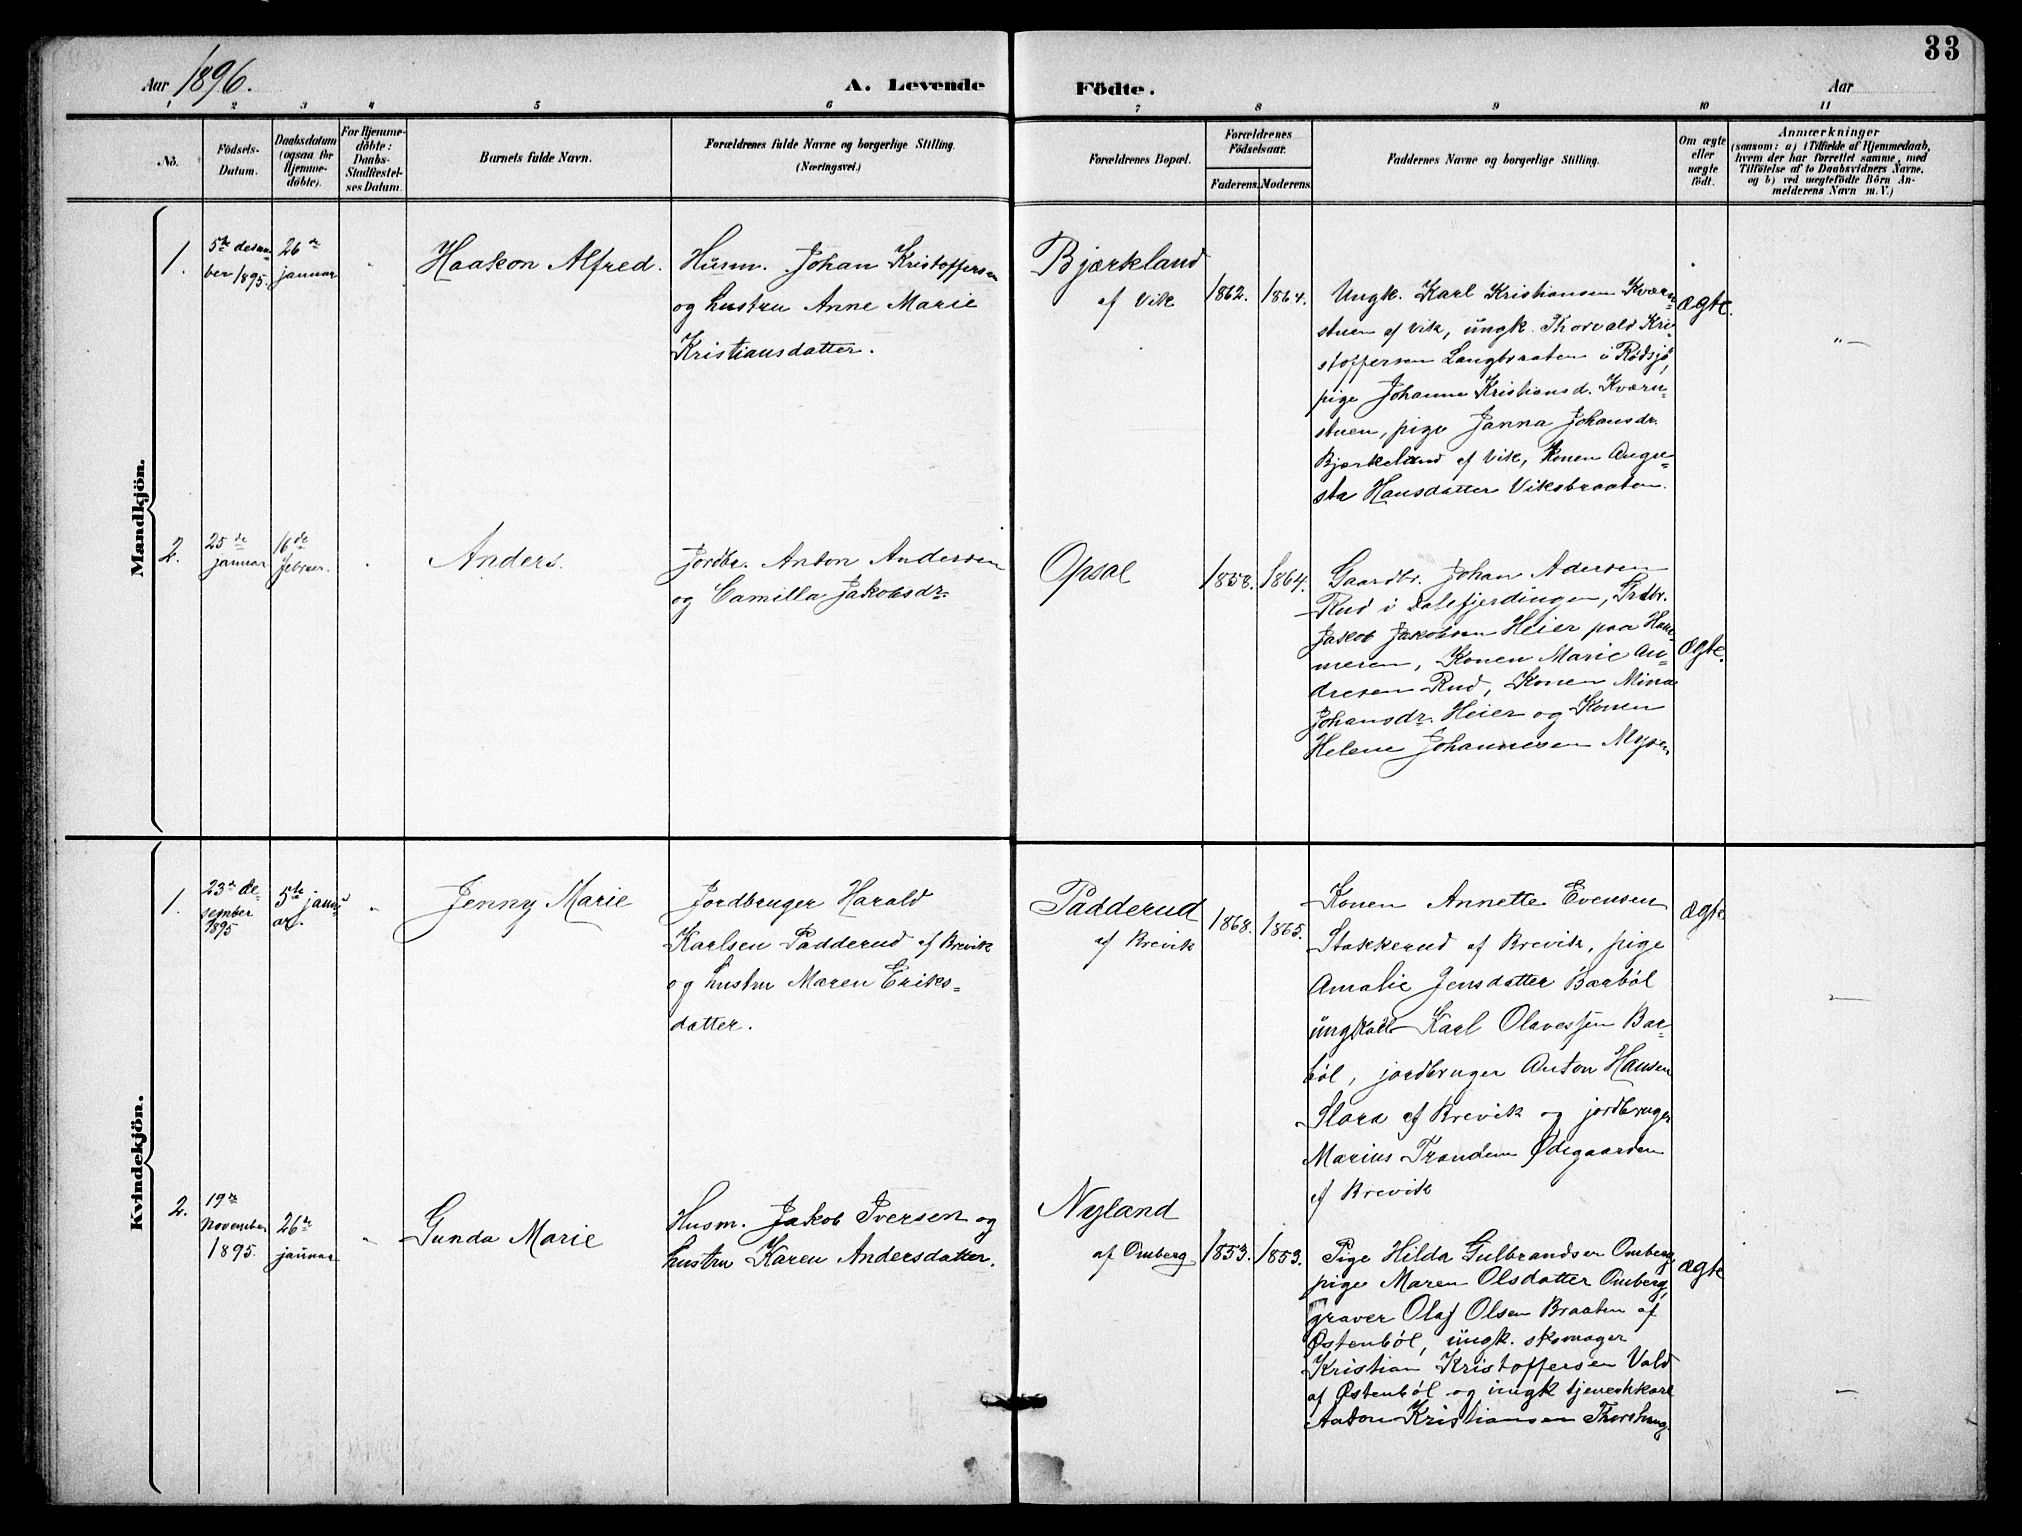 33
Aar 1896.
A. Levende Födte.
Aar
1 2 3 4 5 6 7 8 9 10 11
No.
Födsels-
Datum.
Daabsdatum
(ogsaa for
Hjemme-
döbte).
For Hjemme-
döbte:
Daabs-
Stadfæstel-
ses Datum.
Barnets fulde Navn.
Forældrenes fulde Navne og borgerlige Stilling.
(Næringsvei.)
Forældrenes Bopæl.
Forældrenes
Födselsaar.
Faderens. Moderens.
Faddernes Navne og borgerlige Stilling.
Om ægte
eller
uægte
födt.
Anmærkninger
(saasom: a) i Tilfælde af Hjemmedaab,
hvem der har forrettet samme, med
Tilföielse af to Daabsvidners Navne,
og b) ved uægtefödte Börn An-
melderens Navn m. V.)
Mandkjön.
1.
5te desem-
ber 1895.
26de
januar
Haakon Alfred.
Husm. Johan Kristoffersen
og hustru Anne Marie
Kristiansdatter.
Bjærkland
af Vik
1862. 1864.
Ungk. Karl Kristiansen Kværn-
stuen af Vik, ungk. Thorvald Kri-
stoffersen Langbraaten i Rødsjø,
pige Johanne Kristiansd. Kværn-
stuen, pige Janna Johansdr.
Bjærkeland af Vik, Konen Augu-
sta Hansdatter Viksbraaten.
ægte.
"—
2.
25de
januar
16de
februar.
Anders.
Jordbr. Anton Andersen
og Camilla Jakobsdr.
Opsal
1858. 1864.
Gaardbr. Johan Adersen
Rud i Dalefjerdingen,
Jakob Jakobsen Heier paa Ham-
meren, Konen Marie An-
dresen Rud, Konen Mina
Johansdr. Heier og Konen
Helene Johannesen Mysen
ægte.
Kvindekjön.
1.
23de de-
sember
1895
5te janu-
ar.
Jenny Marie
Jordbruger Harald
Karlsen Padderud af Brevik
og hustru Maren Eriks-
datter.
Padderud
af Brevik
1868. 1865.
Konen Annette Evensen
Stakkerud af Brevik, pige
Amalie Jensdatter Bærböl
ungkarl Karl Olavessen Bær-
böl, jordbruger Anton Hansen
Slora af Brevik og jordbruger
Marius Trandem Ødegaarden
af Brevik
ægte
—
2.
19de
november
1895.
26de
januar
Gunda Marie
Husm. Jakob Iversen og
hustru Karen Andersdatter.
Nyland
af Omberg
1853. 1853.
Pige Hilda Gulbrandsen Omberg,
pige Maren Olsdatter Omberg,
graver Olaf Olsen Braaten af
Østenböl, ungk. skomager
Kristian Kristoffersen Vold
af Østenböl og ungk tjenestkarl
Anton Kristiansen Thorshaug.
ægte
—